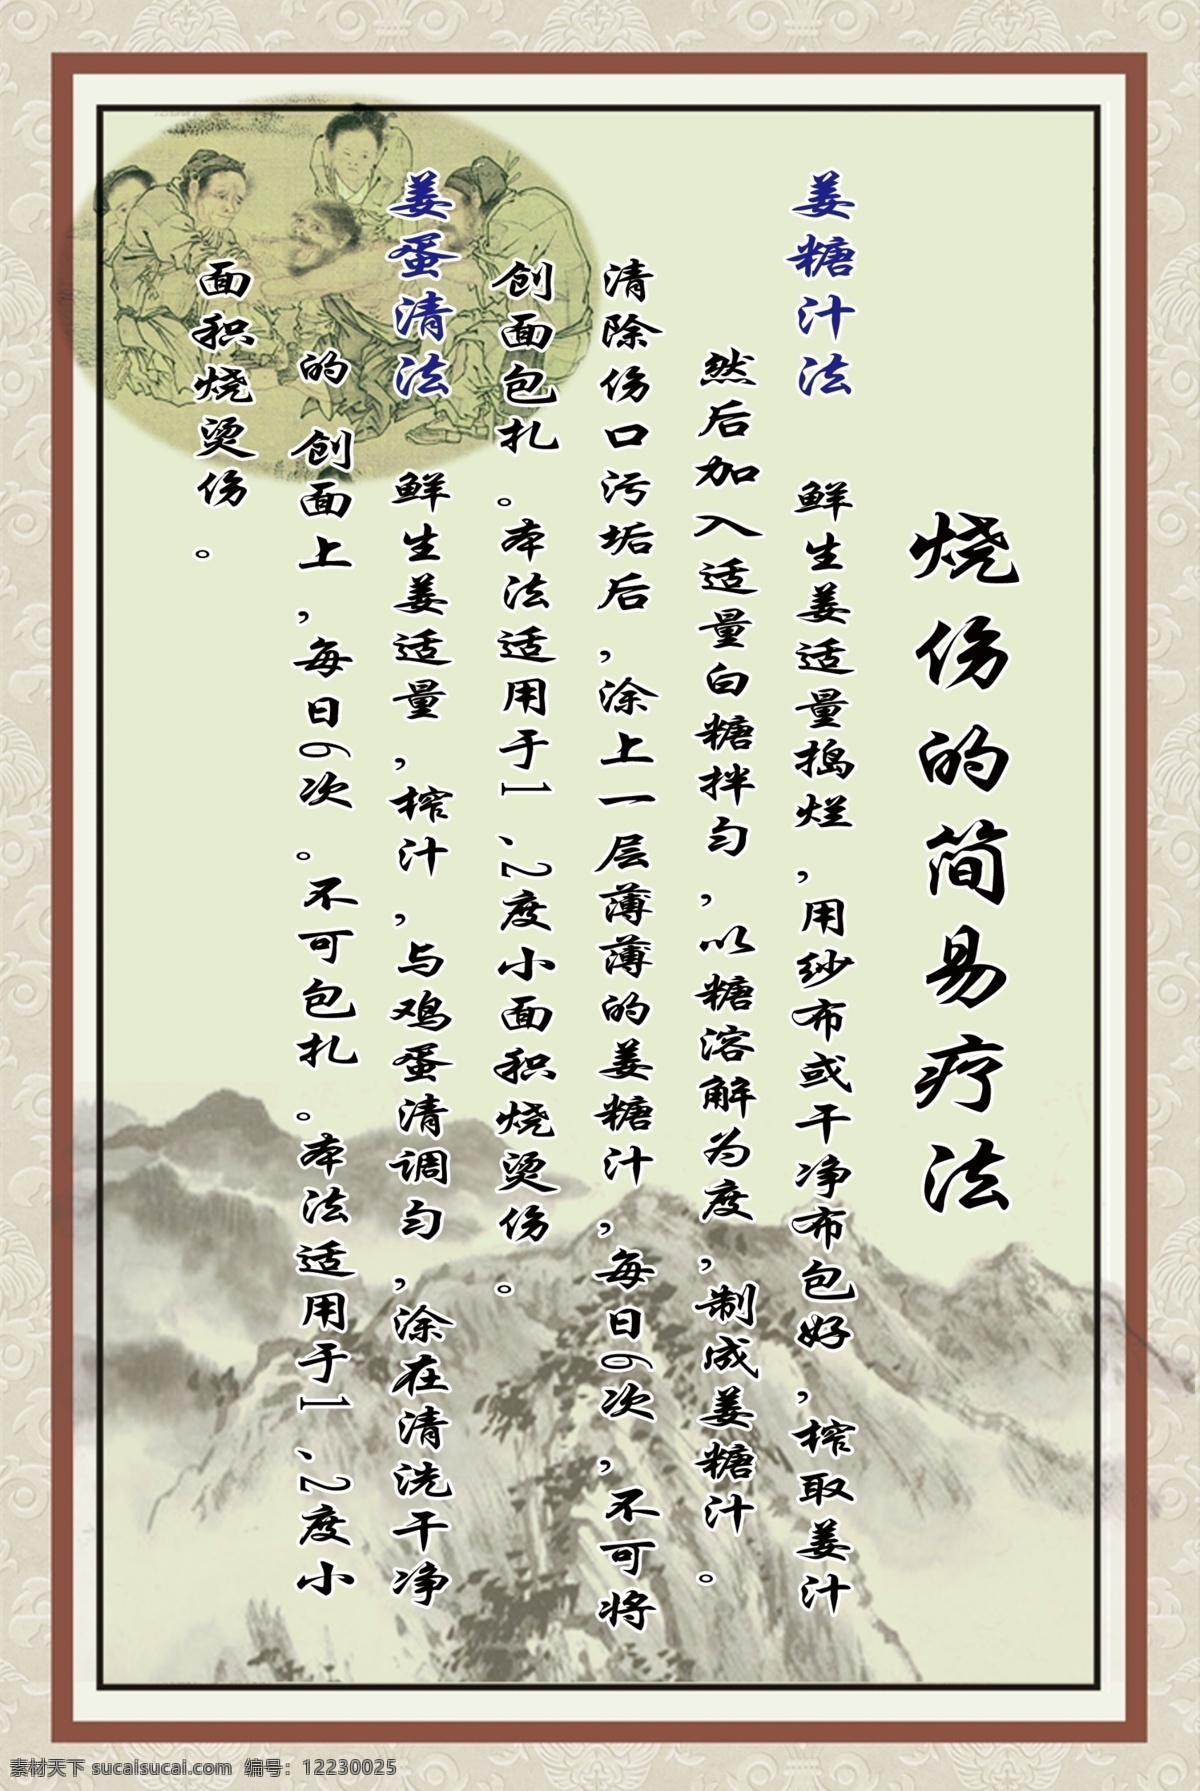 烧伤的简易疗法
姜糖汁法 鲜生姜适量捣烂,用纱布或干净布包好,榨取姜汁
然后加入适量白糖拌匀,以糖溶解为度,制成姜糖汁。
清除伤口污垢后,涂上一层薄薄的姜糖汁,每日6次,不可将
创面包扎。本法适用于1、2度小面积烧烫伤。
姜蛋清法 鲜生姜适量,榨汁,与鸡蛋清调匀,涂在清洗干净
的创面上,每日6次。不可包扎。本法适用于1、2度小
面积烧烫伤。
素材天下 sucaisucai.com 编号:12230025